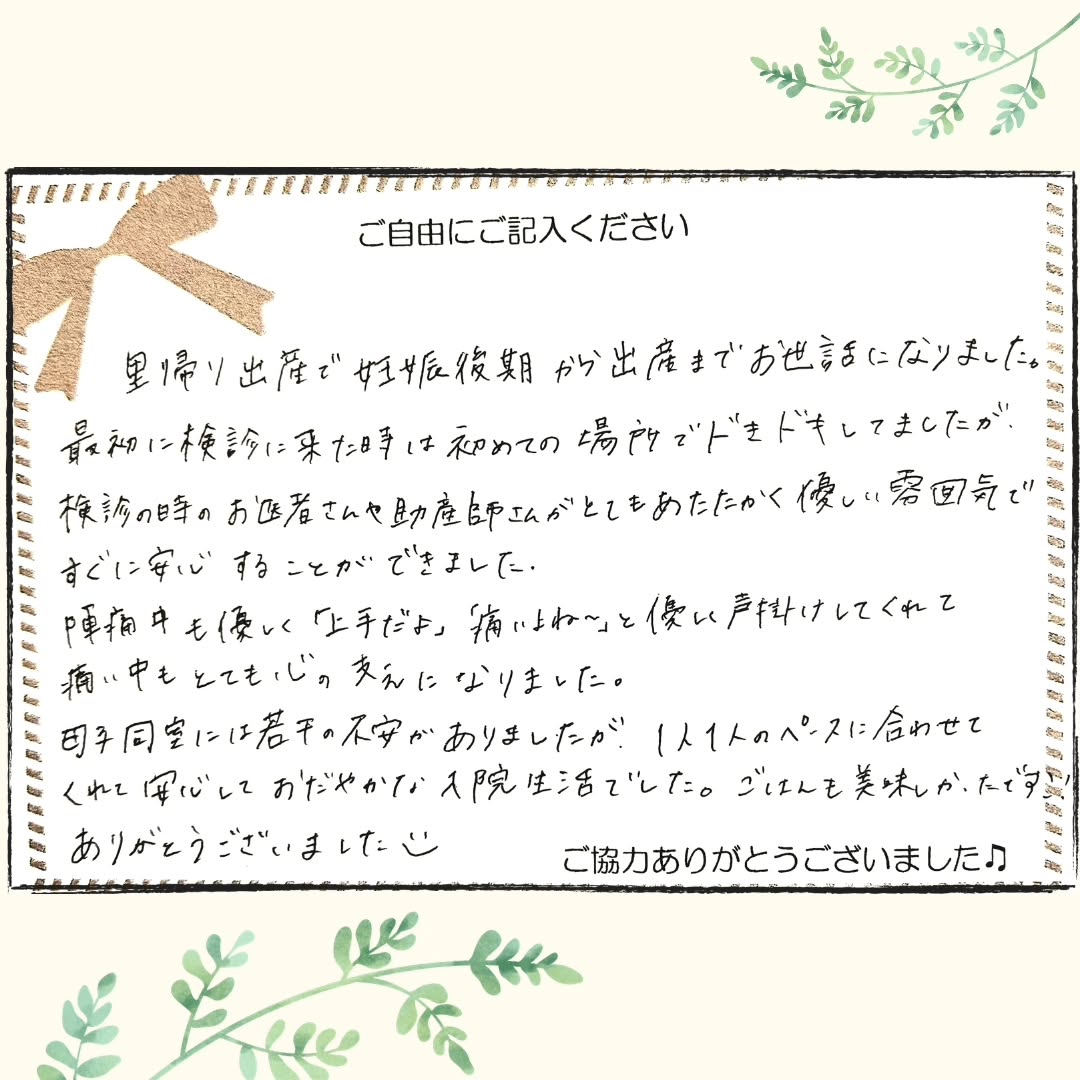 ご自由にご記入ください
里帰り出産で妊娠後期から出産までお世話になりました。
最初に検診に来た時は初めての場所でドきドキしてましたが、
検診の時のお医者さんや助産師さんがとてもあたたかく優しい雰囲気で
すぐに安心することができました。
陣痛中も優しく「上手だよ」「痛いよね〜」と優しく声掛けしてくれて
痛い中もとても心の支えになりました。
母子同室には若干の不安がありましたが、1人1人のペースに合わせて
くれて安心しておだやかな入院生活でした。ごはんも美味しかったです
ありがとうございました
ご協力ありがとうございました♫